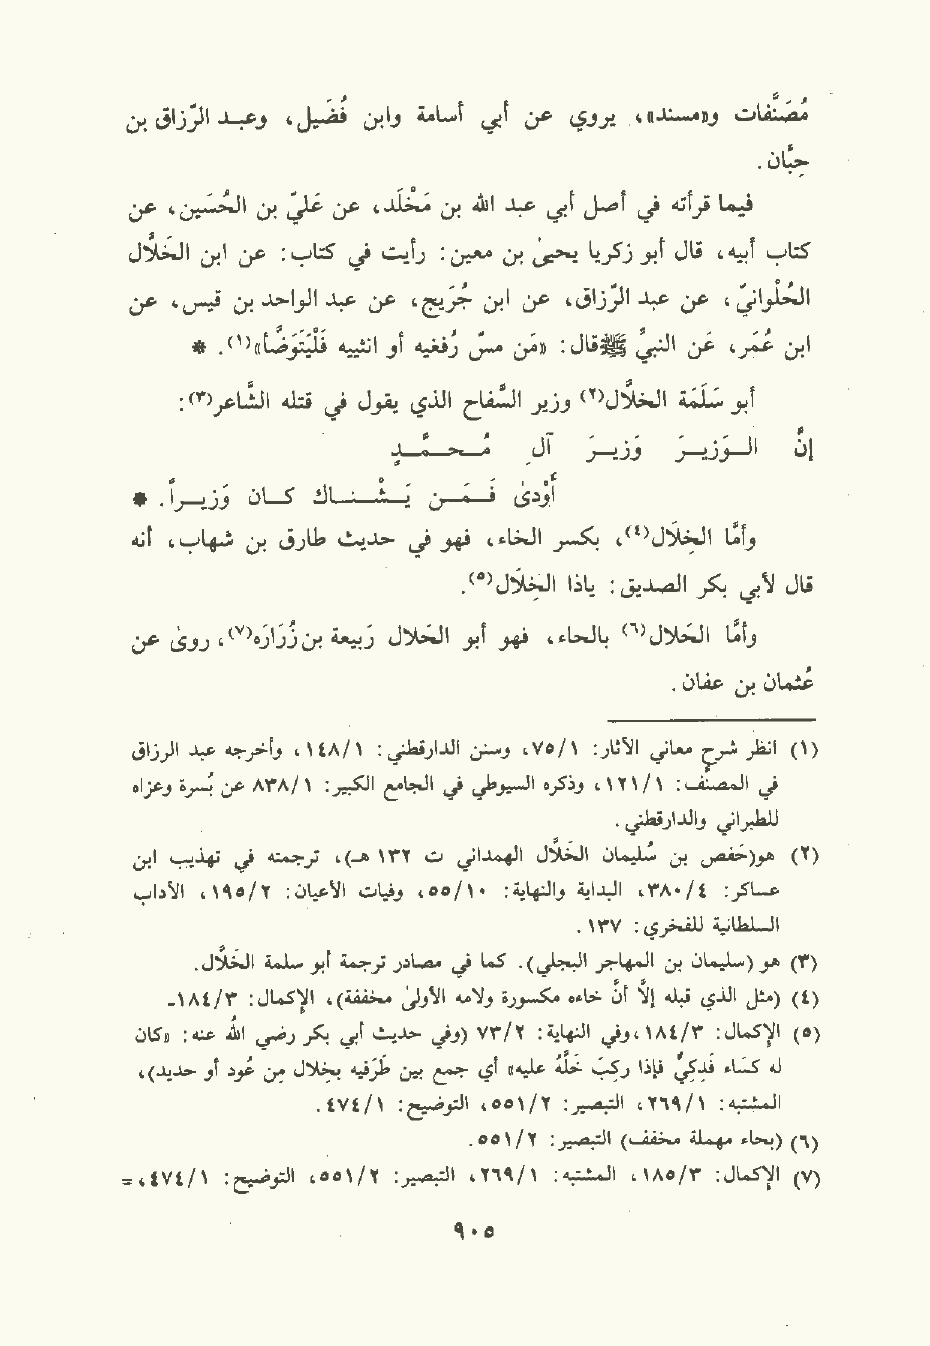 مُصَنَّفات و«مسند»، يروي عن أبي أسامة وابن فُضَيل، وعبد الرّزاق بن
حِبَّان.
فيما قرأته في أصل أبي عبد الله بن مَخْلَد، عن عَليّ بن الحُسَين، عن
كتاب أبيه، قال أبو زكريا يحيىٰ بن معين: رأيت في كتاب: عن ابن الخَلاَّل
الحُلْوانيّ، عن عبد الرزاق، عن ابن جُرَيج، عن عبد الواحد بن قيس، عن
ابن عُمَر، عَن النبيِّ ﷺ قال: «مَن مسَّ رُفغيه أو انثييه فَلْيَتَوَضَّأ»(١). *
أبو سَلَمَة الخلاَّل(٢) وزير السفَّاح الذي يقول في قتله الشَّاعر(٣):
إنَّ الـوَزِيـرَ وَزِيـرَ آلِ مُـحـمَّـدٍ
أَوْدىٰ فَـمَـن يَـشْـنـاك كـان وَزِيـراً. *
وأمَّا الخِلاَل(٤)، بكسر الخاء، فهو في حديث طارق بن شهاب، أنه
قال لأبي بكر الصديق: ياذا الخِلاَل(٥).
وأمَّا الحَلال(٦) بالحاء، فهو أبو الحَلال رَبيعة بن زُرَارَه(٧)، روىٰ عن
عُثمان بن عفان.
(١) انظر شرح معاني الآثار: ٧٥/١، وسنن الدارقطني: ١٤٨/١، وأخرجه عبد الرزاق
في المصنف: ١٢١/١، وذكره السيوطي في الجامع الكبير: ٨٣٨/١ عن بُسرة وعزاه
للطبراني والدارقطني.
(٢) هو(حَفص بن سُليمان الخَلاَّل الهمداني ت ١٣٢ هـ)، ترجمته في تهذيب ابن
عساكر: ٣٨٠/٤، البداية والنهاية: ٥٥/١٠، وفيات الأعيان: ١٩٥/٢، الآداب
السلطانية للفخري: ١٣٧.
(٣) هو (سليمان بن المهاجر البجلي). كما في مصادر ترجمة أبو سلمة الخَلاَّل.
(٤) (مثل الذي قبله إلاَّ أنَّ خاءه مكسورة ولامه الأولىٰ مخففة)، الإكمال: ١٨٤/٣-
(٥) الإكمال: ١٨٤/٣، وفي النهاية: ٧٣/٢ (وفي حديث أبي بكر رضي الله عنه: «كان
له كساء فَدكيٌّ فإذا ركبَ خلَّهُ عليه» أي جمع بين طَرَفيه بخِلال مِن عُود أو حديد)،
المشتبه: ٢٦٩/١، التبصير: ٥٥١/٢، التوضيح: ٤٧٤/١.
(٦) (بحاء مهملة مخفف) التبصير: ٥٥١/٢.
(٧) الإكمال: ١٨٥/٣، المشتبه: ٢٦٩/١، التبصير: ٥٥١/٢، التوضيح: ٤٧٤/١، =
٩٠٥